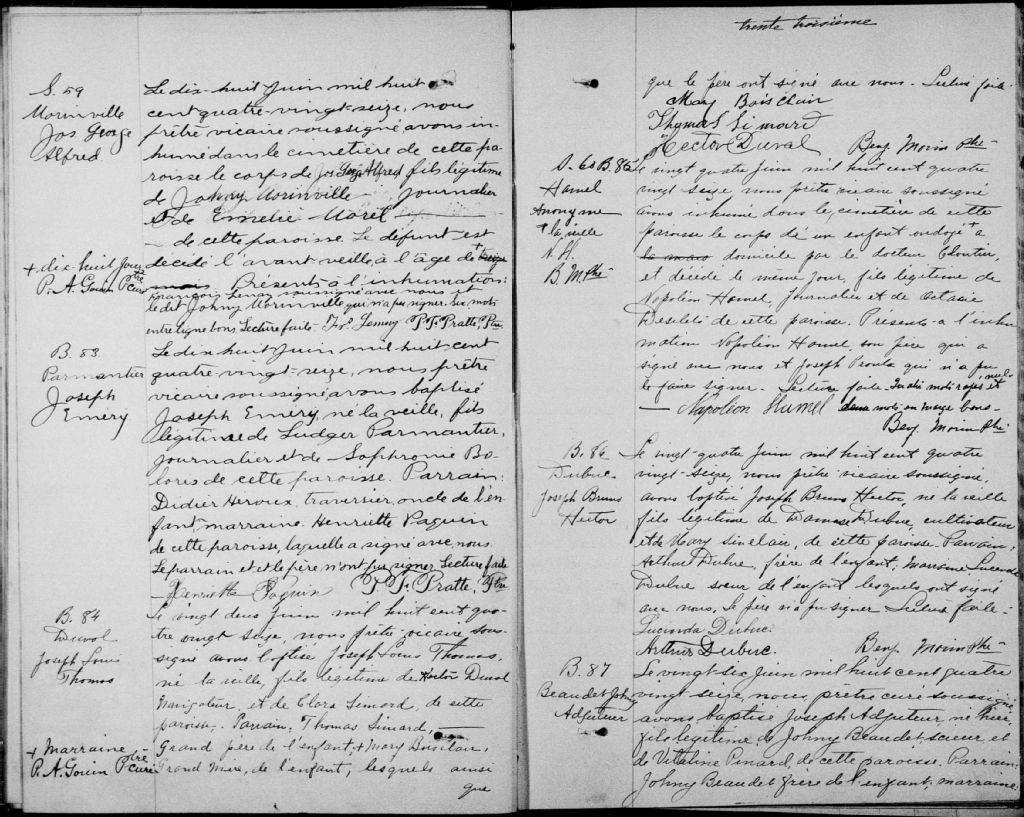 S. 59
Morinville
Jos George
Alfred
Le dix-huit Juin mil huit
cent quatre-vingt-seize, nous
prêtre vicaire soussigné avons in-
humé dans le cimetière de cette pa-
roisse le corps de Jos George Alfred fils légitime
de Johnny Morinville journalier
et de Emélie Morel
de cette paroisse. Le défunt est
décédé l'avant veille, à l'âge de +
+ dix-huit Jours
P. A. Gouin Ptre Curé
Présents à l'inhumation:
François Lemay soussigné avec nous et
le dit Johnny Morinville qui n'a pu signer. Six mots
entre ligne bons. Lecture faite - Frs Lemay P. T. Pratte, Ptre
B. 83
Parmantier
Joseph
Emery
Le dix-huit Juin mil huit cent
quatre vingt-seize, nous prêtre
vicaire soussigné avons baptisé
Joseph Emery, né la veille, fils
légitime de Ludger Parmantier,
journalier et de Sophronie Bo-
lores de cette paroisse. Parrain:
Didier Heroux, traversier, oncle de l'en-
fant, marraine. Henriette Paquin
de cette paroisse, laquelle a signé avec nous.
Le parrain et et le père n'ont pu signer Lecture faite
Henriette Paquin P. T. Pratte, Ptre
B. 84
Duval
Joseph Louis
Thomas
Le vingt deux Juin mil huit cent qua-
tre vingt seize, nous prêtre vicaire sous-
signé avons baptisé Joseph Louis Thomas,
né la veille, fils légitime de Hector Duval
Navigateur, et de Clara Simard, de cette
paroisse. Parrain, Thomas Simard,
+ Marraine
P. A. Gouin Ptre curé
Grand père de l'enfant, + Mary Boisclair,
Grand Mère, de l'enfant, lesquels ainsi
que
trente troisième
que le père ont signé avec nous. Lecture faite.
Mary Boisclair
Thomas Simard
Hector Duval Benj. Morin Ptre
S. 60 B. 85
Hamel
Anonyme
+ la veille
N. H.
B. M. Ptre
Le vingt quatre Juin mil huit cent quatre
vingt seize nous prêtre vicaire soussigné
avons inhumé dans le cimetière de cette
paroisse le corps de un enfant ondoyé + a
domicile par le docteur Cloutier,
et décédé le même jour, fils légitime de
Napoléon Hamel, Journalier et de Octavie
Desilets de cette paroisse. Présents à l'inhu-
mation Napoléon Hamel son père qui a
signé avec nous et Joseph Proulx qui n'a pu
le faire signer. Lecture faite. mots rayés nuls et
Napoléon Hamel deux mots en marge bons -
Benj. Morin Ptre
B. 86
Dubuc
Joseph Bruno
Hector
Le vingt quatre Juin mil huit cent quatre
vingt-seize, nous prêtre vicaire soussigné,
avons baptisé Joseph Bruno Hector, né la veille
fils légitime de Damase Dubuc, cultivateur
et de Mary Sinclair, de cette paroisse. Parrain,
Arthur Dubuc, frère de l'enfant, marraine Lucinda
Dubuc soeur de l'enfant lesquels ont signé
avec nous, le père n'a pu signer Lecture faite -
Lucinda Dubuc
Arthur Dubuc. Benj. Morin Ptre
B. 87
Beaudet Johny
Adjuteur
Le vingt-six Juin mil huit cent quatre
vingt seize, nous, prêtre curé soussigné
avons baptisé Joseph Adjuteur, né hier,
fils légitime, de Johny Beaudet, scieur, et
de Vitaline Pinard, de cette paroisse. Parrain:
Johny Beaudet frère de l'enfant, marraine: